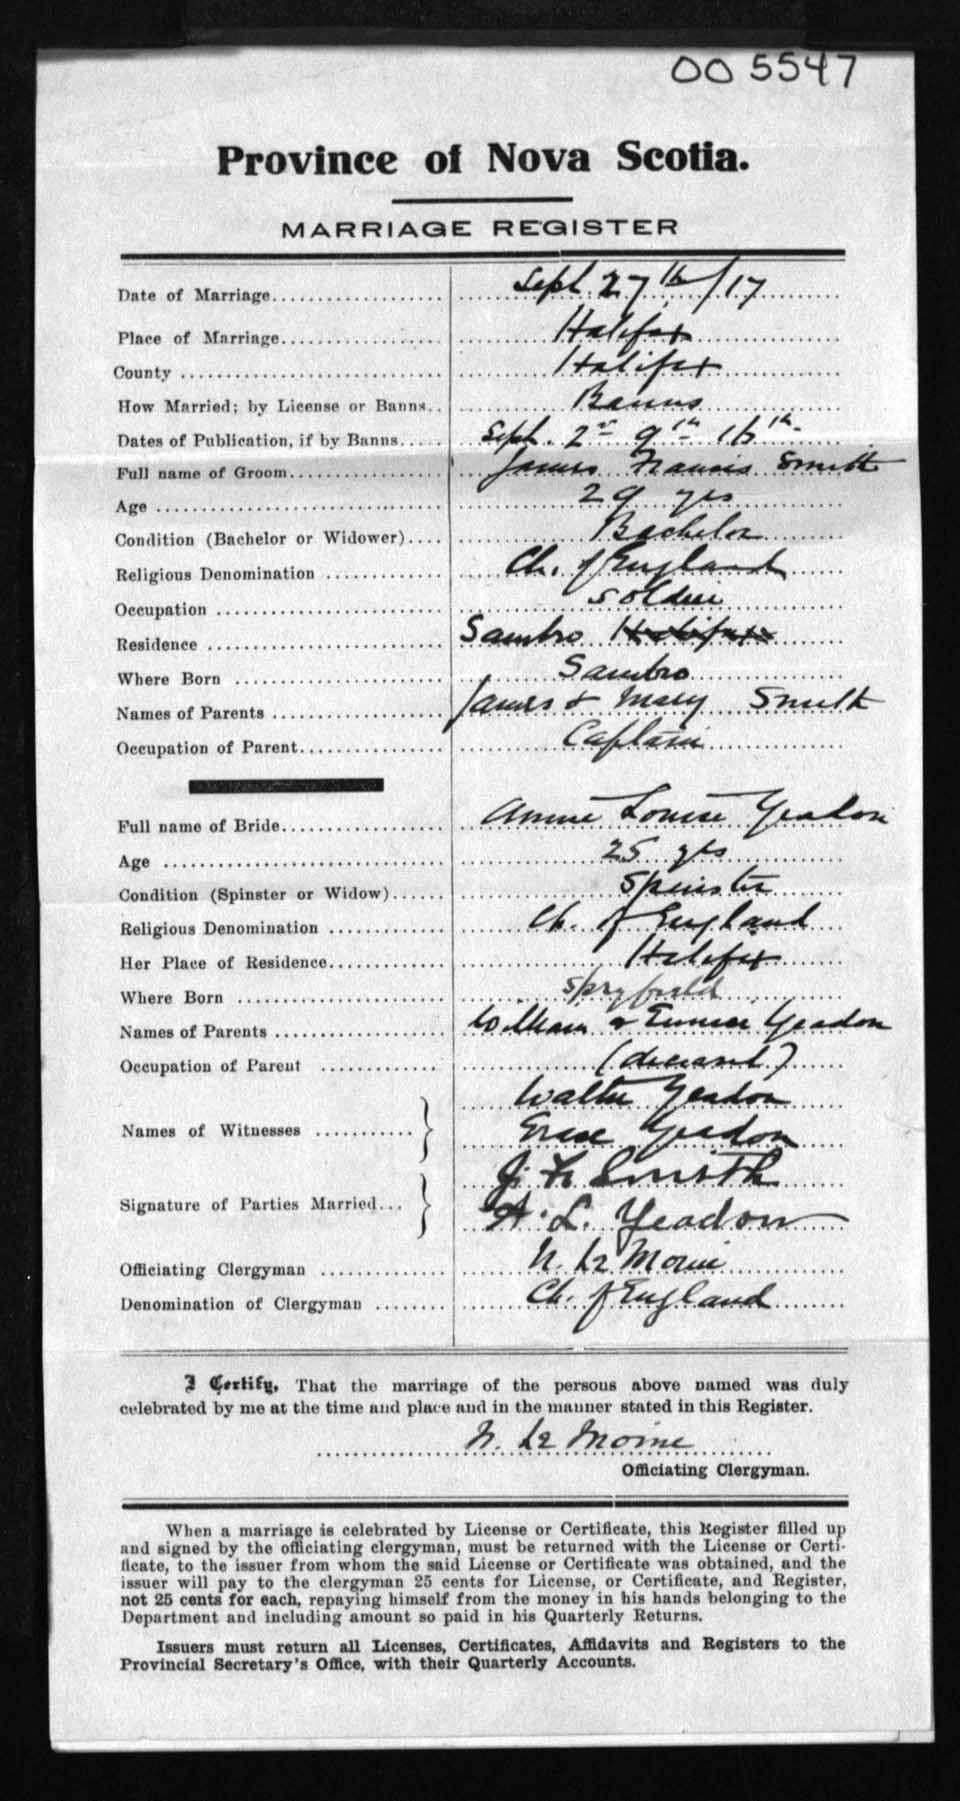 005547
Province of Nova Scotia.
MARRIAGE REGISTER
Date of Marriage Sept 27th/17
Place of Marriage Halifax
County Halifax
How Married; by License or Banns Banns
Dates of Publication, if by Banns Sept. 2nd 9th 16th
Full name of Groom James Francis Smith
Age 29 yrs
Condition (Bachelor or Widower) Bachelor
Religious Denomination Ch. of England
Occupation Soldier
Residence Sambro Halifax
Where Born Sambro
Names of Parents James & Mary Smith
Occupation of Parent Captain
Full name of Bride Annie Louise Yeadon
Age 25 yrs
Condition (Spinster or Widow) Spinster
Religious Denomination Ch. of England
Her Place of Residence Halifax
Where Born Spryfield
Names of Parents William & Eunice Yeadon
Occupation of Parent (deceased)
Names of Witnesses Walter Yeadon
Yeadon
Signature of Parties Married J. F. Smith
A. L. Yeadon
Officiating Clergyman N. Le Moine
Denomination of Clergyman Ch. of England
I Certify, That the marriage of the persons above named was duly
celebrated by me at the time and place and in the manner stated in this Register.
N. Le Moine
Officiating Clergyman.
When a marriage is celebrated by License or Certificate, this Register filled up
and signed by the officiating clergyman, must be returned with the License or Certi-
ficate, to the issuer from whom the said License or Certificate was obtained, and the
issuer will pay to the clergyman 25 cents for License, or Certificate, and Register,
not 25 cents for each, repaying himself from the money in his hands belonging to the
Department and including amount so paid in his Quarterly Returns.
Issuers must return all Licenses, Certificates, Affidavits and Registers to the
Provincial Secretary's Office, with their Quarterly Accounts.